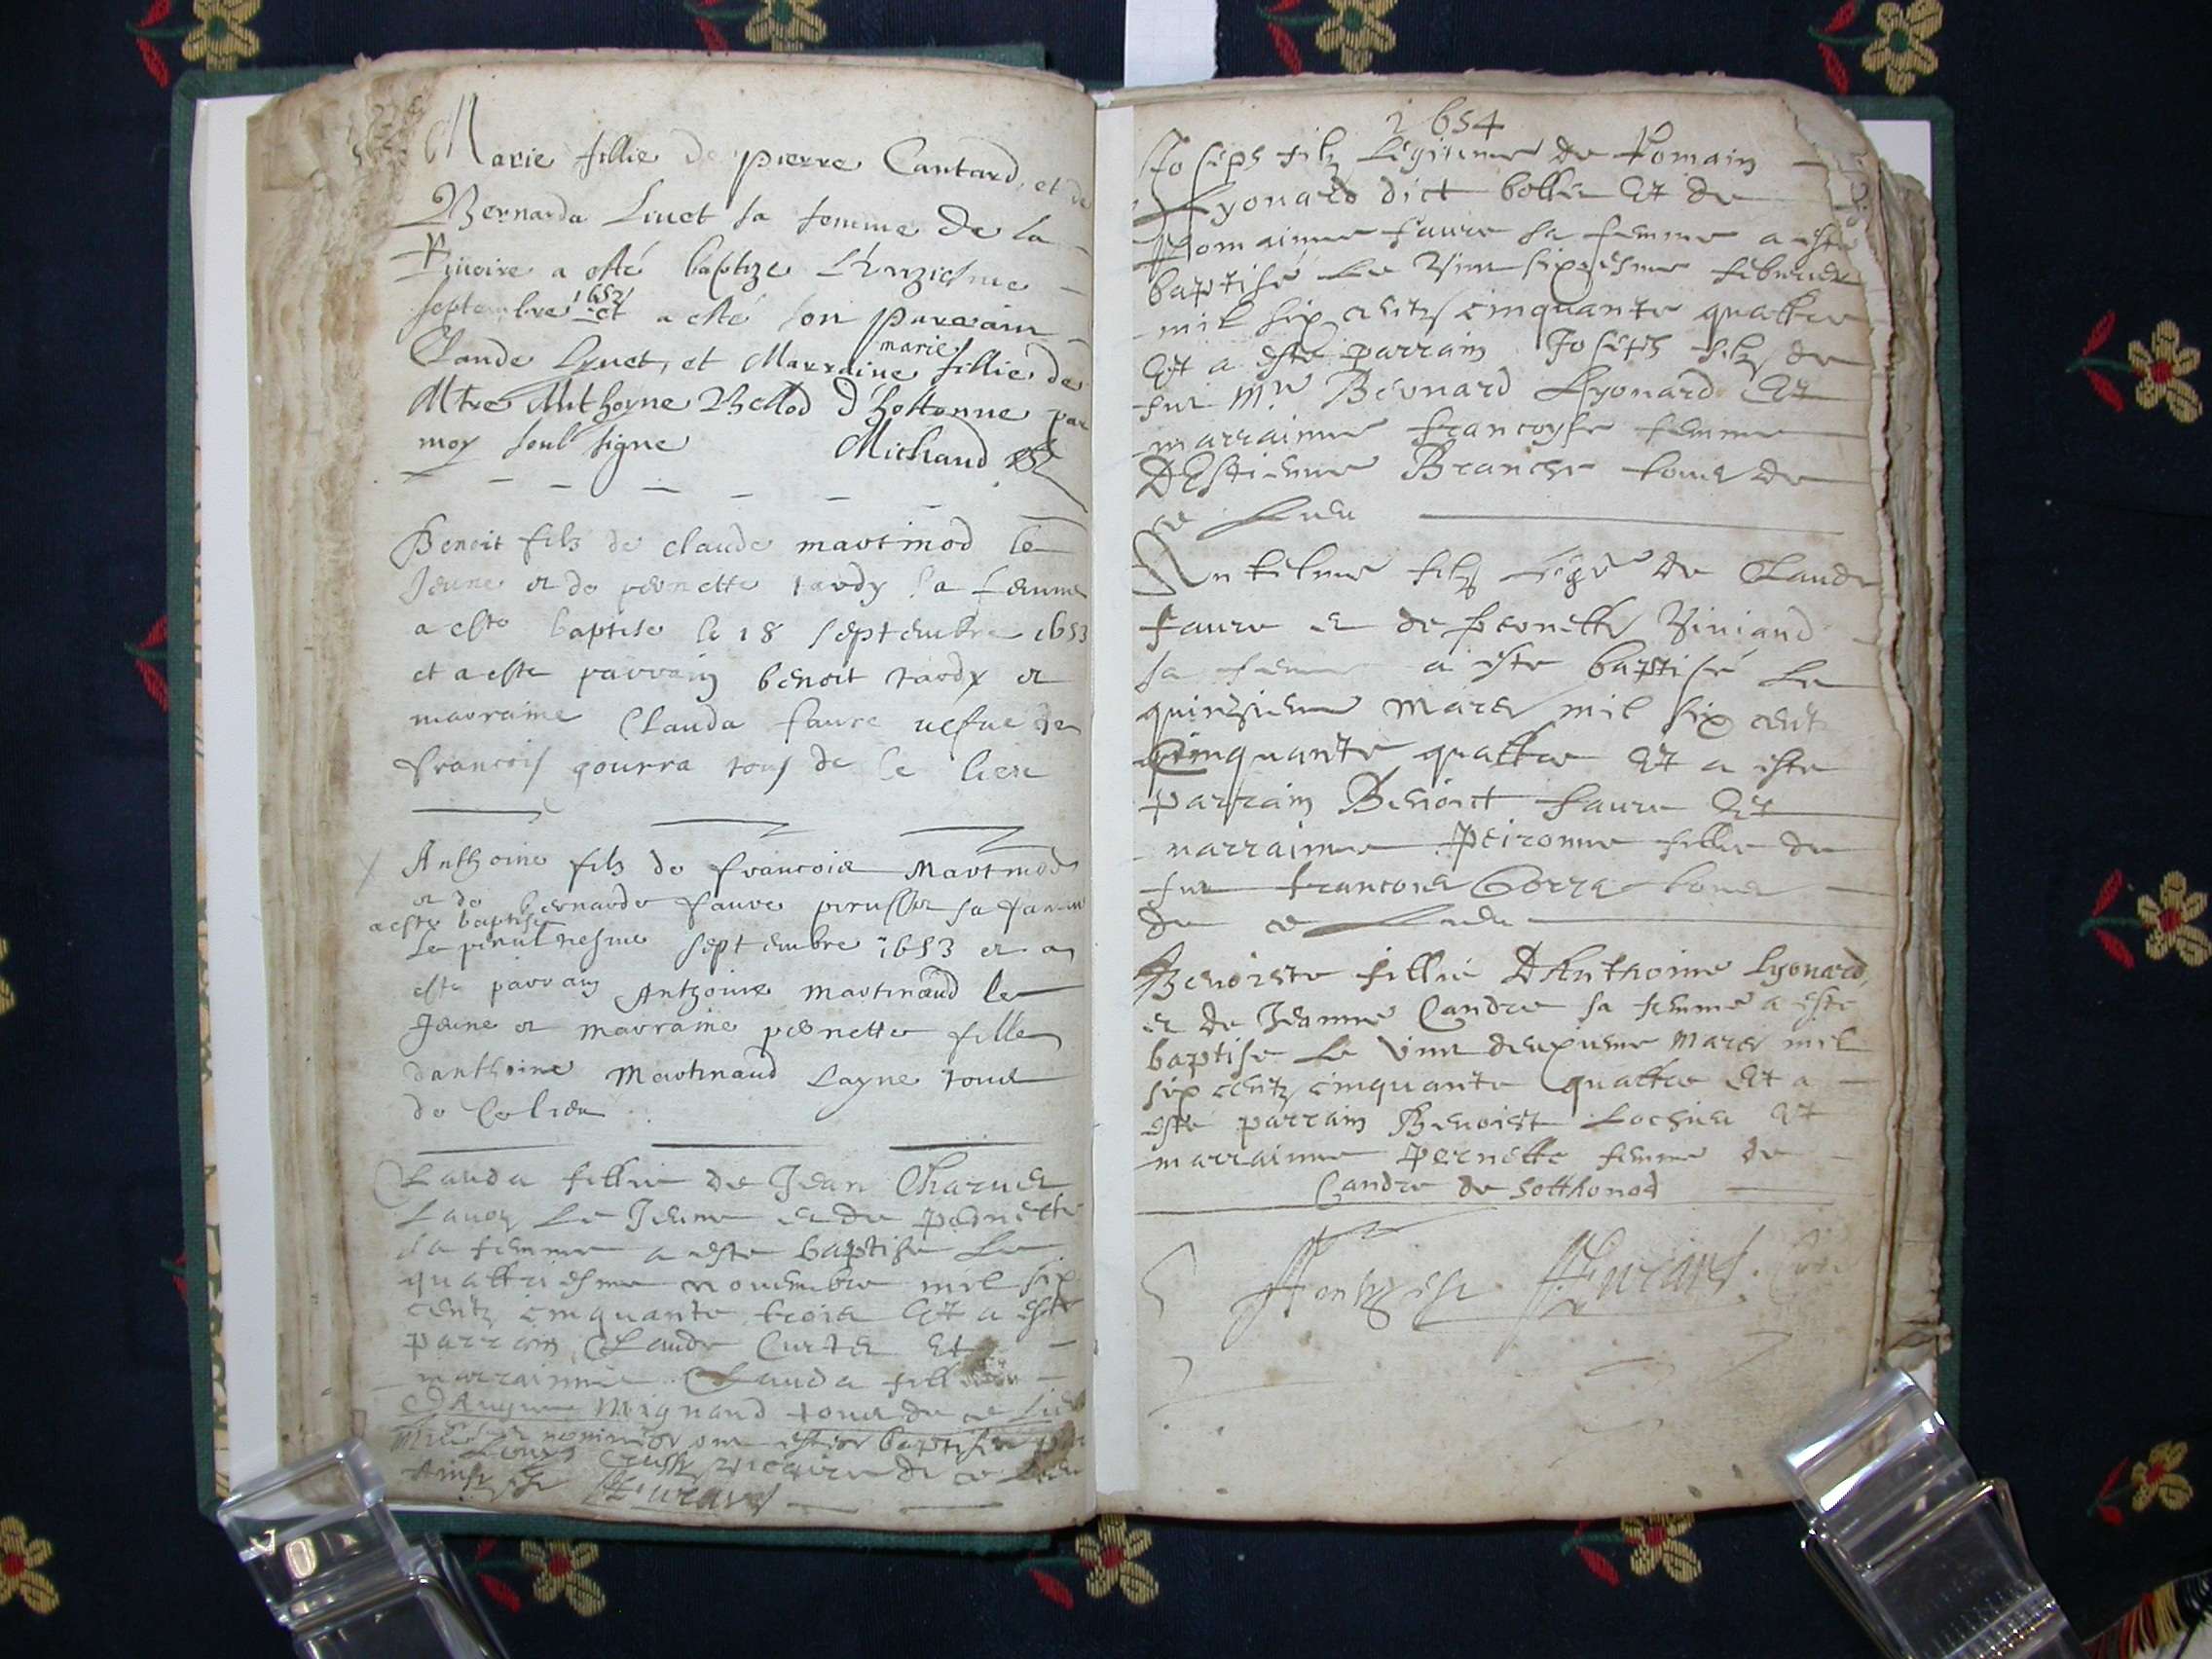 Marie fillie de pierre Cantard, et de
Bernarda Livet sa femme de la
a esté baptize L'Unziesme
septembre 1652 et a esté son parrain
Claude Lyvet, et Marraine marie fillie de
Mtre Anthoyne Bellod d'hostonne par
moy soub signe Michaud
Benoit fils de claude martinod le
Jeune et de pernette tardy sa femme
a este baptise le 18 septembre 1653
et a este parrain benoit tardy et
marraine Clauda faure vefue de
francois gourra tous de ce lieu
Anthoine fils de francois Martinod
et de bernarde faure sa famme
a este baptise
Le penultiesme septembre 1653 et a
este parrain Anthoine martinaud le
Jeune et marraine pernette fille
danthoine Martinaud Layne tous
de Ce lieu
Clauda fillie de Jean Charvet
Le Jeune et de pernette
sa femme a este baptise Le
quattriesme novembre mil six
centz cinquante trois Et a este
parrain Claude Curtet Et
marrainne Clauda
Mignaud tous de ce lieu
ont estes baptises par
vicaire de ce lieu
Ainsy est
1654
Joseph filz Legitime de Romain
Lyonard dict bollie Et de
Romainne faure sa femme a este
baptisé Le Vint sixiesme febvrier
mil six centz cinquante quattre
Et a este parrain Joseph filz de
feu Mre Bernard Lyonard Et
marrainne francoyse femme
D'Estienne Branche tous de
ce Lieu
Antelme filz de Claude
faure et de pernette Viniand
sa femme a este baptisé Le
quinziesme Mars mil six cent
Cinquante quattre Et a este
parrain Benoict faure Et
marrainne Peironne fillie de
feu francois Gorra tous
de ce Lieu
Benoiste fillie D'Anthoine Lyonard,
et de Jeanne Candre sa femme a este
baptise Le Vint deuxieme Mars mil
six centz cinquante quattre Et a
este parrain Benoist Lochieu Et
marrainne Pernette femme de
Candre de Sotthonod